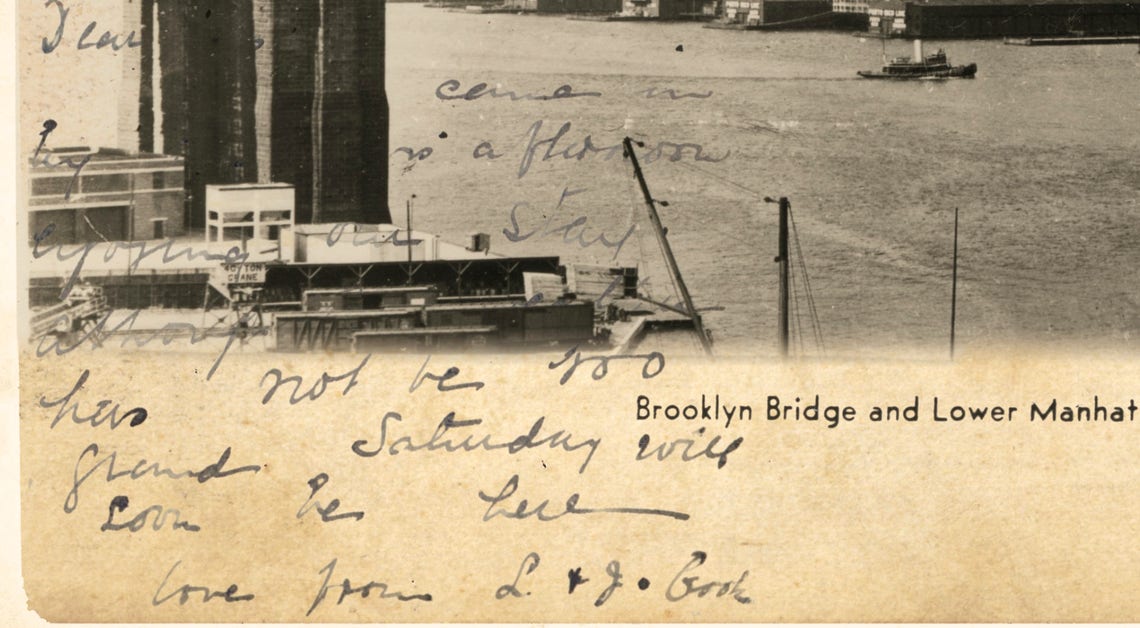 Dear
came in
by afternoon
enjoying our stay
ROYTON
CRANE
although
has not be too
Brooklyn Bridge and Lower Manhat
grand Saturday will
soon be here
love from L. & J. Cook